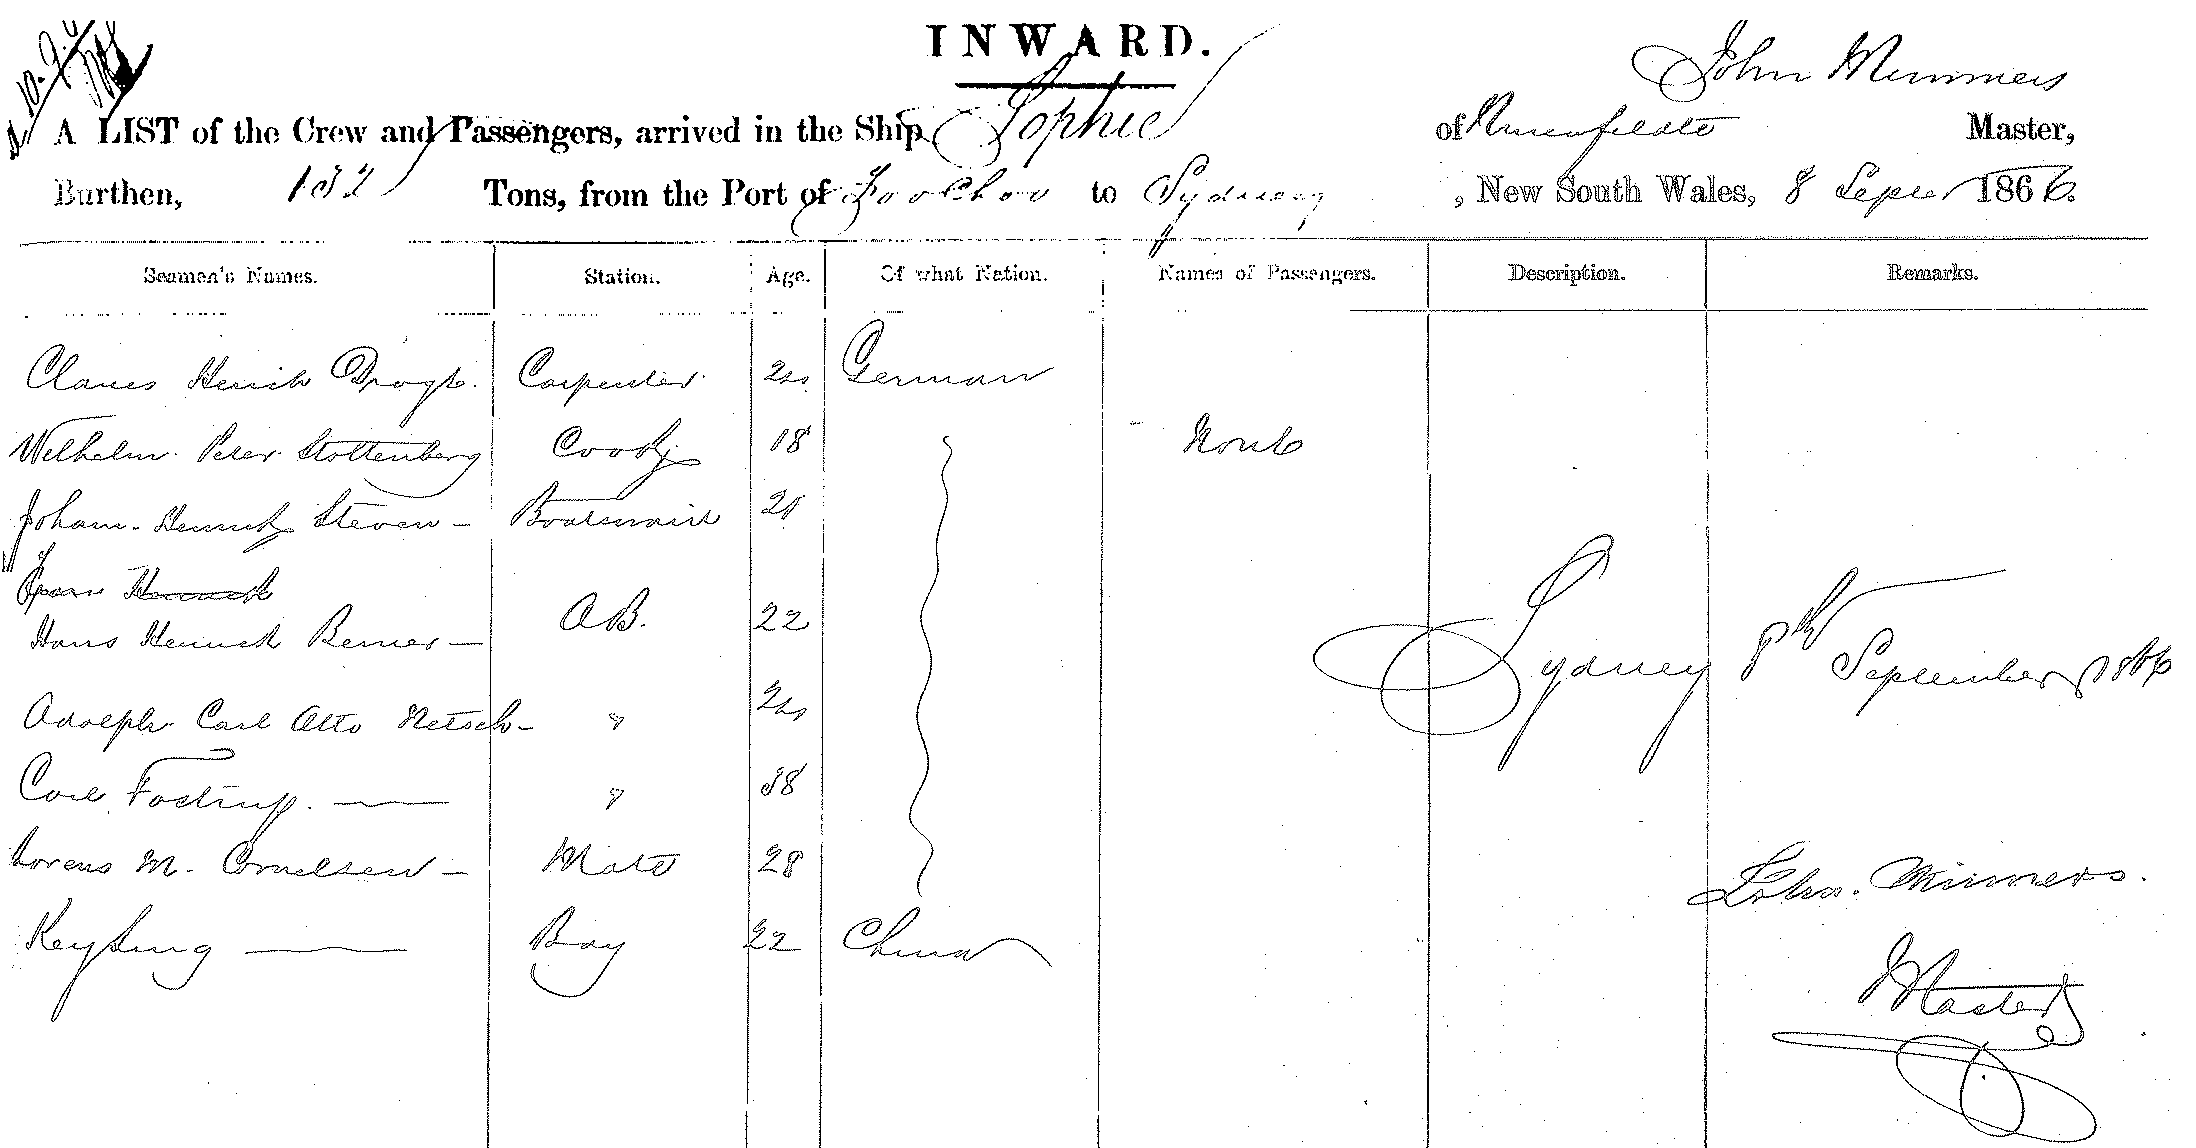 INWARD.
John Mimmers
A LIST of the Crew and Passengers, arrived in the Ship Sophie of Master,
Burthen, 132 Tons, from the Port of Foochow to Sydney, New South Wales, 8 Septer 1866.
Seamen's Names. Station. Age. Of what Nation. Names of Passengers. Description. Remarks.
Claues Henrich Drogt. Carpenter German
Wilhelm Peter Stottenberg Cook 18 None
Johann Henrich Steven - Boatswain 21
Hans Henrich Remer - A.B. 22
Sydney 8th September 1866
Adolph Carl Otto Netsch - "
Carl Fostrup. — " 38
Lorens M. Cornelsen - Mate 28
John. Mimmers.
Keysing — Boy 22 China
Master